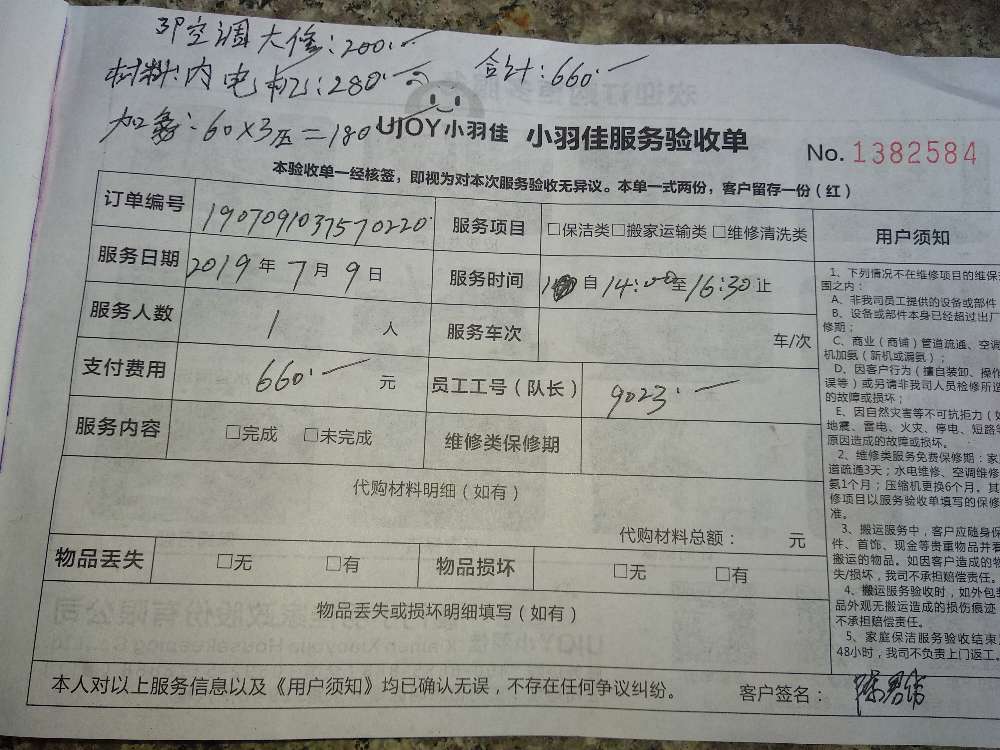 3P空调大修:200.
材料:内电机:280.
合计:660.
加氟:60×3压=180
UJOY小羽佳 小羽佳服务验收单
No. 1382584
本验收单一经核签，即视为对本次服务验收无异议。本单一式两份，客户留存一份（红）
订单编号 1907091037570220 服务项目 □保洁类□搬家运输类 □维修清洗类
服务日期 2019年7月9日 服务时间 自14:00至16:30止
服务人数 1 人 服务车次 车/次
支付费用 660. 元 员工工号（队长） 9023.
服务内容 □完成 □未完成 维修类保修期
代购材料明细（如有）
代购材料总额： 元
物品丢失 □无 □有 物品损坏 □无 □有
物品丢失或损坏明细填写（如有）
本人对以上服务信息以及《用户须知》均已确认无误，不存在任何争议纠纷。 客户签名：
用户须知
1、下列情况不在维修项目的维保
围之内：
A、非我司员工提供的设备或部件
B、设备或部件本身已经超过出厂
修期；
C、商业（商铺）管道疏通、空调
机加氨（新机或漏氨）；
D、因客户行为（擅自装卸、操作
误等）或另请非我司人员检修所
的故障或损坏；
E、因自然灾害等不可抗拒力（如
地震、雷电、火灾、停电、短路等
原因造成的故障或损坏。
2、维修类服务免费保修期：家
道疏通3天；水电维修、空调维修
氨1个月；压缩机更换6个月。其
修项目以服务验收单填写的保修
准。
3、搬运服务中，客户应随身保
件、首饰、现金等贵重物品并
搬运的物品。如因客户造成的物
失/损坏，我司不承担赔偿责任。
4、搬运服务验收时，如外包装
品外观无搬运造成的损伤痕迹
不承担赔偿责任。
5、家庭保洁服务验收结束
48小时，我司不负责上门返工。